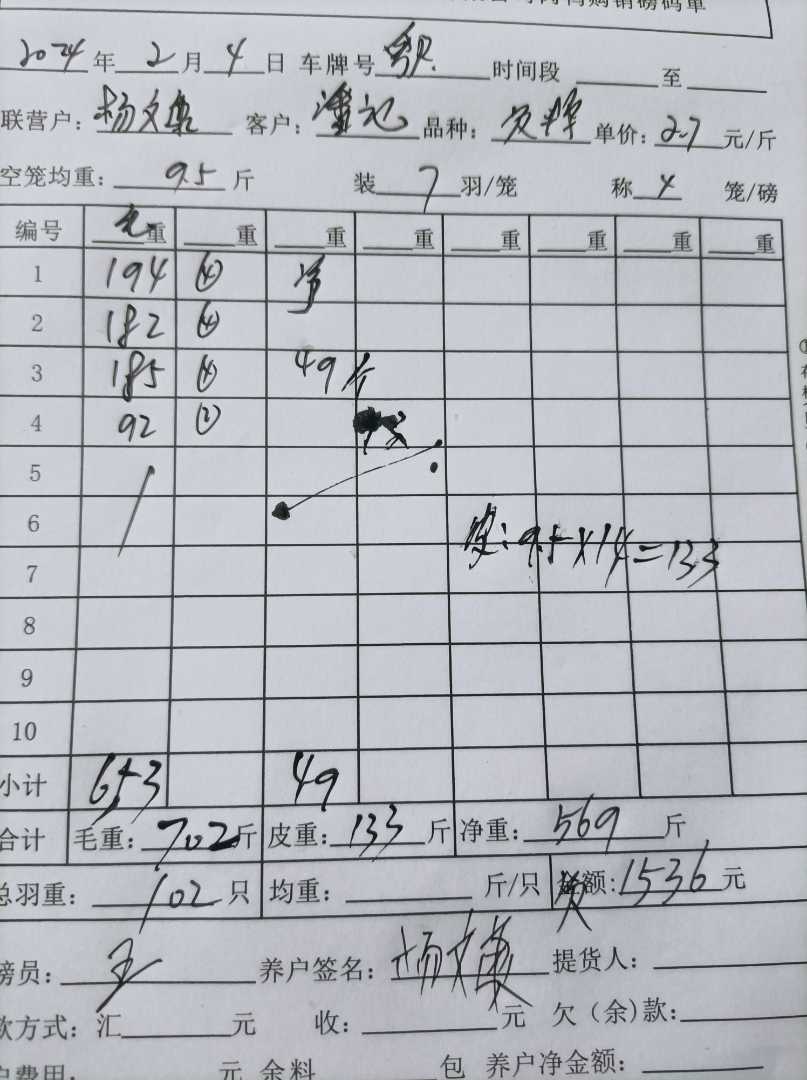 购销磅码单
2024年2月4日 车牌号 时间段 至
联营户：杨文 客户：潘记 品种： 单价：2.7元/斤
空笼均重：9.5斤 装7羽/笼 称4笼/磅
编号 毛重 重 重 重 重 重 重 重
1 194 ④ 净
2 182 ④
3 185 ④ 49斤
4 92 ②
5
6
空：9.5×14=133
7
8
9
10
小计 653 49
合计 毛重：702斤 皮重：133斤 净重：569斤
总羽重：102只 均重： 斤/只 额：1536元
磅员：王 养户签名：杨文 提货人：
款方式：汇 元 收： 元 欠（余）款：
户费用： 元 余料 包 养户净金额：